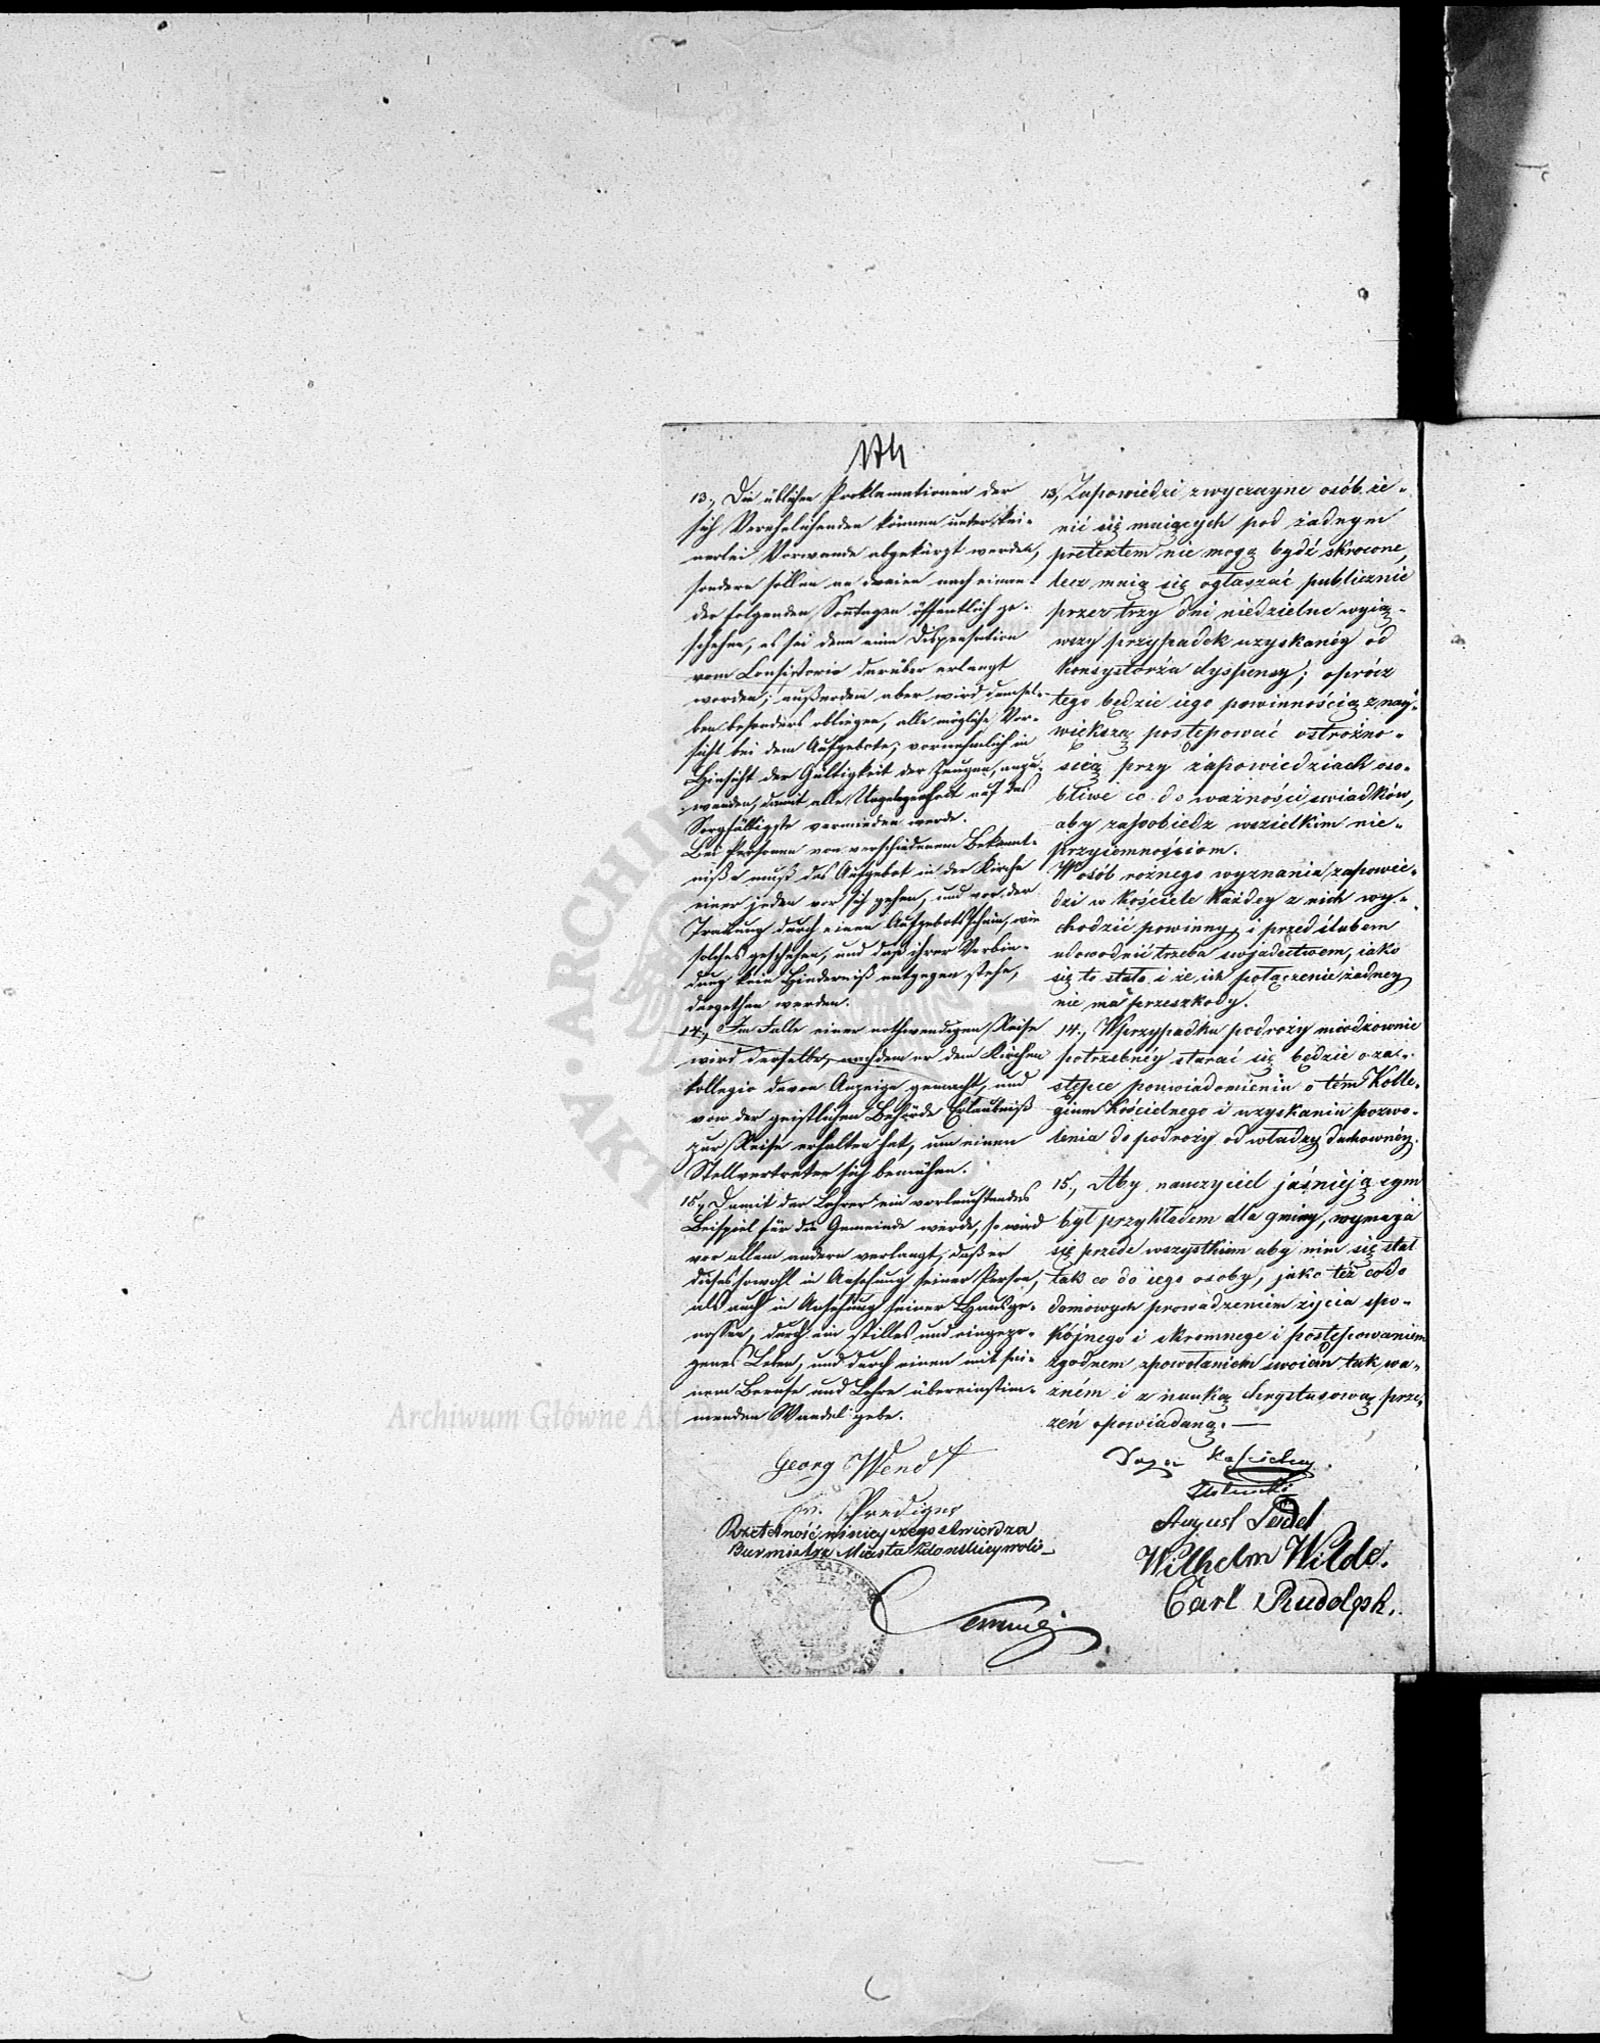 13., Die üblichen Proklamationen der
sich Verehelichenden können unter kei-
nerlei Vorwande abgekürzt werden,
sondern sollen an dreien nach einan-
der folgenden Sonntagen öffentlich ge-
schehen, es sei denn eine Dispensation
vom Consistorio darüber erlangt
worden; außerdem aber wird demsel-
ben besonders obliegen, alle mögliche Vor-
sicht bei dem Aufgebote, vornehmlich in
Hinsicht der Gültigkeit der Zeugen, anzu-
wenden, damit alle Ungelegenheit auf das
Sorgfältigste vermieden werde.
Bei Personen von verschiedenem Bekennt-
niße muß das Aufgebot in der Kirche
einer jeden vor sich gehen, und vor der
Trauung durch einen Aufgebotsschein, wie
solches geschehen, und daß ihrer Verbin-
dung kein Hinderniß entgegen stehe,
dargethan werden.
14., Im Falle einer nothwendigen Reise
wird derselbe, nachdem er dem Kirchen
kollegio davon Anzeige gemacht, und
von der geistlichen Behörde Erlaubniß
zur Reise erhalten hat, um einen
Stellvertreter sich bemühen.
15., Damit der Lehrer ein vorleuchtendes
Beispiel für die Gemeinde werde, so wird
vor allem andern verlangt, daß er
dieses sowohl in Ansehung seiner Person,
als auch in Ansehung seiner Hausge-
nossen, durch ein stilles und eingezo-
genes Leben, und durch einen mit sei-
nem Berufe und Lehre übereinstim-
menden Wandel gebe.
Georg Wendt
Prediger
Rzetelność ninieyszego stwierdza
Burmistrz Miasta Zdonskiey woli
13, Zapowiedzi zwyczayne osób że-
nić się maiących pod żadnym
pretextem nie mogą bydź skrocone,
lecz maią się ogłaszać publicznie
przez trzy dni niedzielne wyią-
wszy przypadek uzyskanéy od
Konsystorza dyspensy; oprócz
tego będzie iego powinnością z nay-
większą postępować ostrożno-
scią przy zapowiedziach oso-
bliwe co do ważności swiadków,
aby zapobiedz wszelkim nie-
przyiemnościom.
W osób rożnego wyznania zapowie-
dzi w kościele każdey z nich wy-
chodzić powinny, i przed slubem
udowodnić trzeba swjadectwem, iako
się to stało i że ich połączeniu żadney
nie ma przeszkody.
14., W przypadku podroży niodzownie
potrzebnéy starać się będzie o zas-
tępce ponwiadomieniu o tém Kolle-
gium Kościelnego i uzyskaniu pozwo-
lenia do podroży od władzy duchownéy.
15., Aby nauczyciel jaśniejącym
był przykładem dla gminy, wymaga
się przede wszystkiem aby nim się stał
tak co do iego osoby, jako też co do
domowych prowadzeniem życia spo-
kojnego i skromnego i postępowaniem
zgodnem zpowołaniem swoiém tak wa-
żném i z nauką Chrystusową prze-
zeń opowiadaną. —
August Seidel
Wilhelm Wilde.
Carl Rudolph.
ARCHIWUM
AKT
Archiwum Główne Akt Dawnych